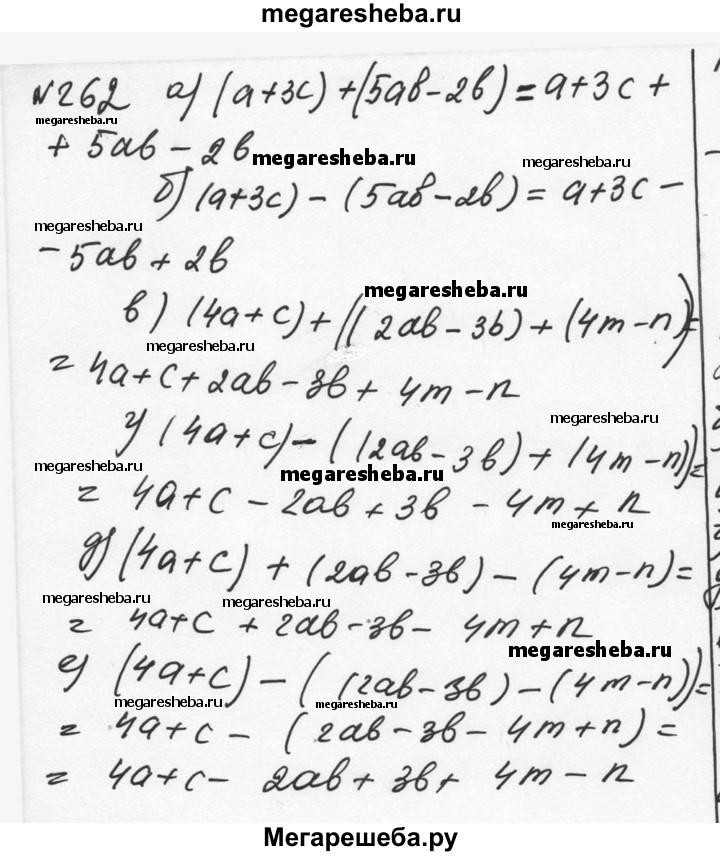 megaresheba.ru
№262 а) (a+3c)+(5ab-2b)=a+3c+
megaresheba.ru
megaresheba.ru
+ 5ab - 2b
megaresheba.ru
megaresheba.ru
б) (a+3c) - (5ab-2b) = a+3c-
megaresheba.ru
-5ab+2b
megaresheba.ru
в) (4a+c)+((2ab-3b)+(4m-n))=
megaresheba.ru
= 4a+c+2ab-3b+4m-n
megaresheba.ru
г) (4a+c)-((2ab-3b)+(4m-n))=
megaresheba.ru
megaresheba.ru
= 4a+c-2ab+3b-4m+n
megaresheba.ru
д) (4a+c)+(2ab-3b)-(4m-n)=
megaresheba.ru
megaresheba.ru
= 4a+c+2ab-3b-4m+n
megaresheba.ru
е) (4a+c)-((2ab-3b)-(4m-n))=
megaresheba.ru
megaresheba.ru
= 4a+c-(2ab-3b-4m+n)=
= 4a+c-2ab+3b+4m-n
Мегарешеба.ру